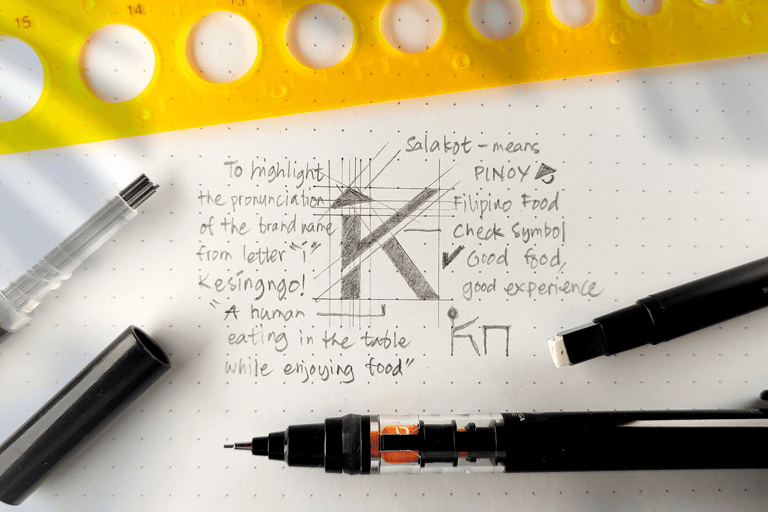 15
14
13
To highlight
the pronunciation
of the brand name
from letter "i"
Kesingngo!
"A human
eating in the table
while enjoying food"
K
Salakot - means
PINOY
Filipino Food
Check Symbol
Good food,
good experience